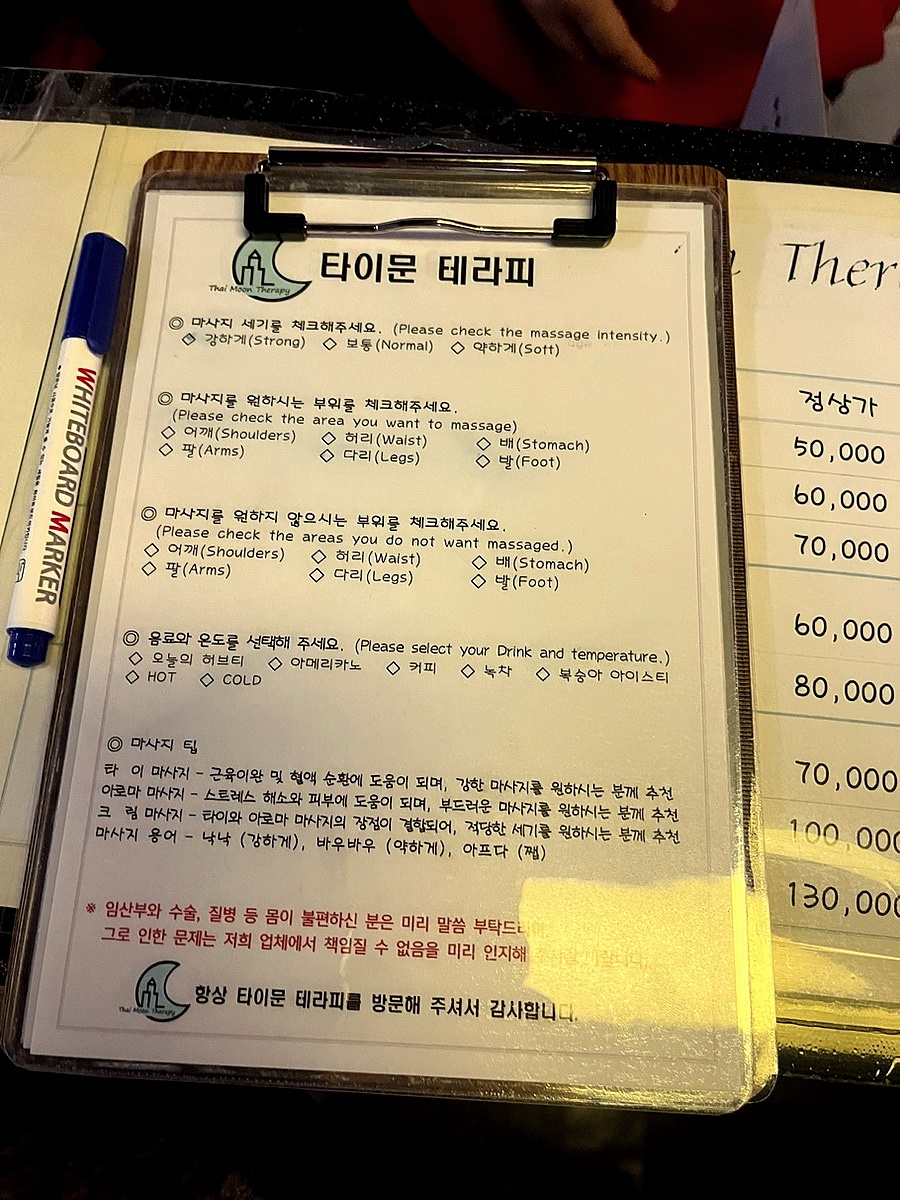 Thai Moon Therapy
타이문 테라피
◎ 마사지 세기를 체크해주세요. (Please check the massage intensity.)
◇ 강하게(Strong) ◇ 보통(Normal) ◇ 약하게(Soft)
◎ 마사지를 원하시는 부위를 체크해주세요.
(Please check the area you want to massage)
◇ 어깨(Shoulders) ◇ 허리(Waist) ◇ 배(Stomach)
◇ 팔(Arms) ◇ 다리(Legs) ◇ 발(Foot)
◎ 마사지를 원하지 않으시는 부위를 체크해주세요.
(Please check the areas you do not want massaged.)
◇ 어깨(Shoulders) ◇ 허리(Waist) ◇ 배(Stomach)
◇ 팔(Arms) ◇ 다리(Legs) ◇ 발(Foot)
◎ 음료와 온도를 선택해 주세요. (Please select your Drink and temperature.)
◇ 오늘의 허브티 ◇ 아메리카노 ◇ 커피 ◇ 녹차 ◇ 복숭아 아이스티
◇ HOT ◇ COLD
◎ 마사지 팁
타 이 마사지 - 근육이완 및 혈액 순환에 도움이 되며, 강한 마사지를 원하시는 분께 추천
아로마 마사지 - 스트레스 해소와 피부에 도움이 되며, 부드러운 마사지를 원하시는 분께 추천
크 림 마사지 - 타이와 아로마 마사지의 장점이 결합되어, 적당한 세기를 원하시는 분께 추천
마사지 용어 - 낙낙 (강하게), 바우바우 (약하게), 아프다 (쨉)
※ 임산부와 수술, 질병 등 몸이 불편하신 분은 미리 말씀
그로 인한 문제는 저희 업체에서 책임질 수 없음을 미리 인지해
Thai Moon Therapy
항상 타이문 테라피를 방문해 주셔서 감사합니다.
WHITEBOARD MARKER
Ther
정상가
50,000
60,000
70,000
60,000
80,000
70,000
100,000
130,000